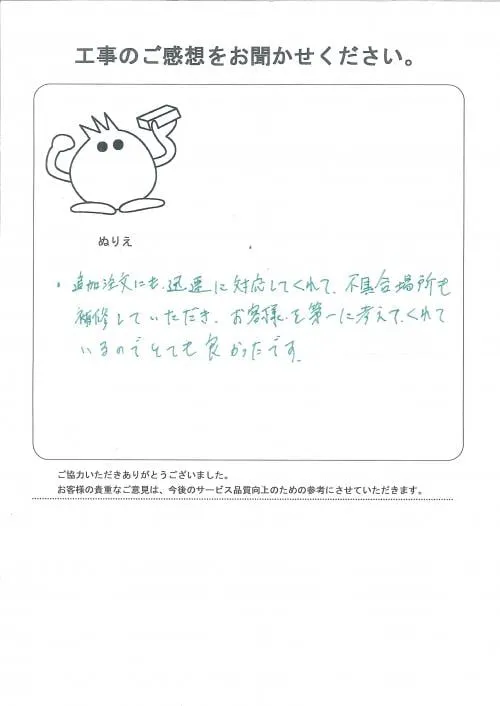 工事のご感想をお聞かせください。
ぬりえ
・追加注文にも、迅速に対応してくれて、不具合場所も
補修していただき、お客様を第一に考えてくれて
いるのでとても良かったです。
ご協力いただきありがとうございました。
お客様の貴重なご意見は、今後のサービス品質向上のための参考にさせていただきます。